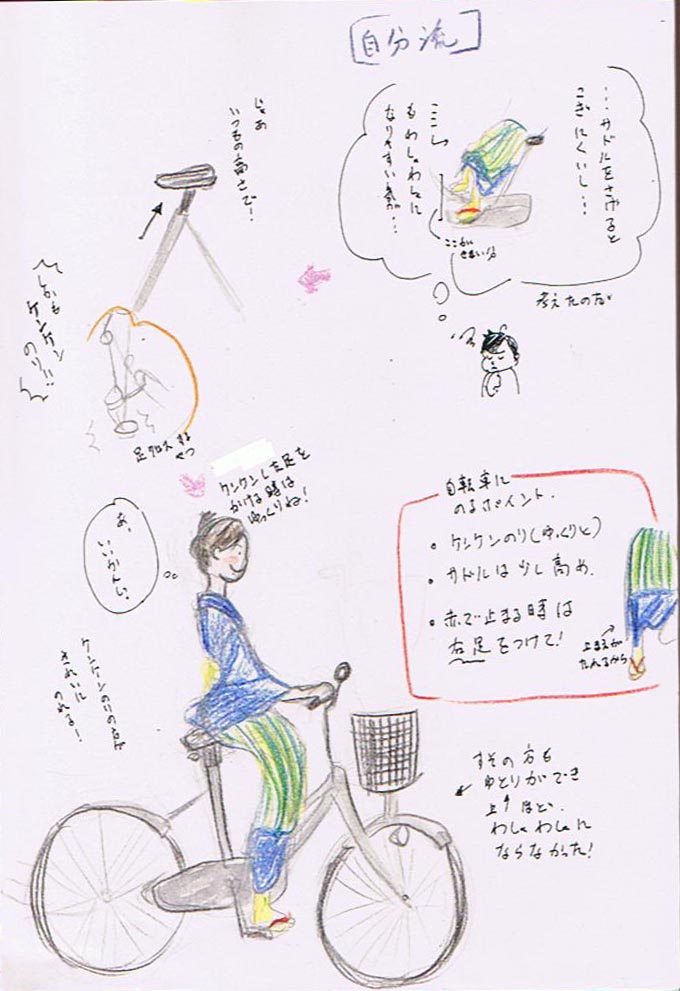 [自分流]
…サドルをさげると
こぎにくいし…
ここし
もわしゃわしゃに
なりやすい気が…
ここが
せまい分
考えたのち
じゃあ
いつもの高さで!
しかも
ケンケン
のり!!
足クロスする
やつ
ケンケンした足を
かける時は
ゆっくりね!
あ、
いいかんじ。
ケンケンのりの方が
きれいに
のれる!
自転車に
のるポイント.
・ケンケンのり(ゆっくりと)
・サドルは少し高め.
・赤で止まる時は
右足をつけて!
上まえが
たれるから
すその方も
ゆとりができ
上ほど、
わしゃわしゃに
ならなかった!